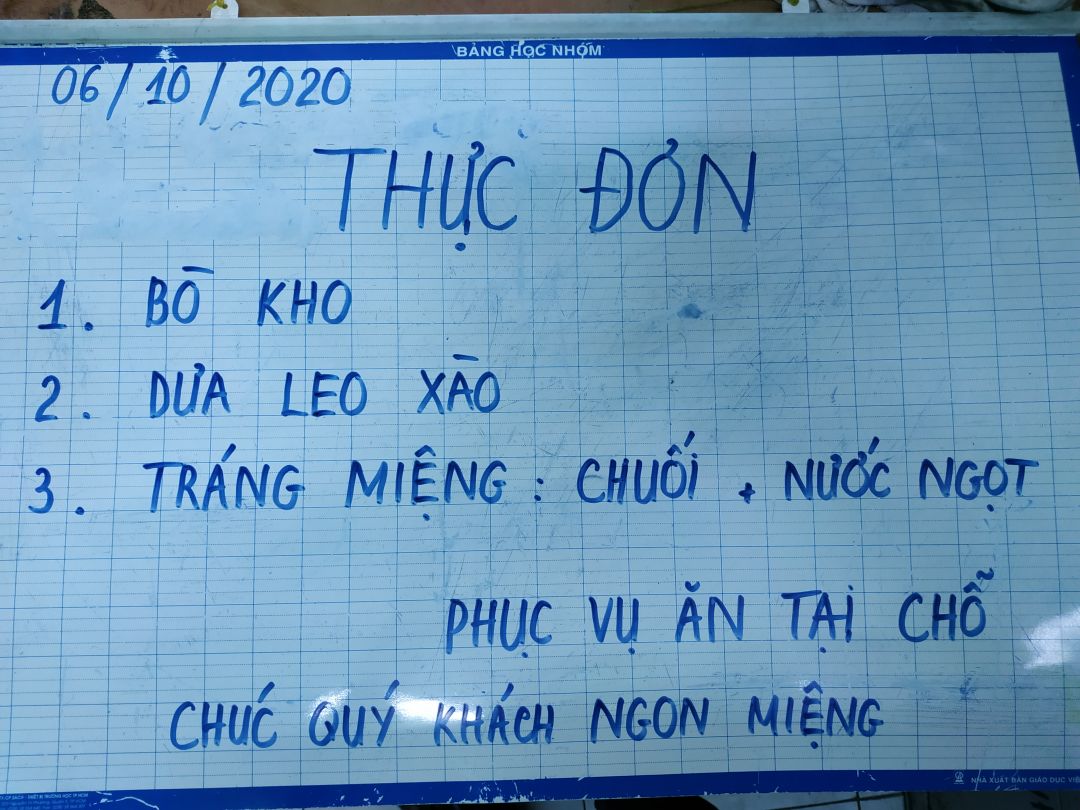 BẢNG HỌC NHÓM
06/10/2020
THỰC ĐƠN
1. BÒ KHO
2. DƯA LEO XÀO
3. TRÁNG MIỆNG : CHUỐI + NƯỚC NGỌT
PHỤC VỤ ĂN TẠI CHỖ
CHÚC QUÝ KHÁCH NGON MIỆNG
NHÀ XUẤT BẢN GIÁO DỤC VIỆ